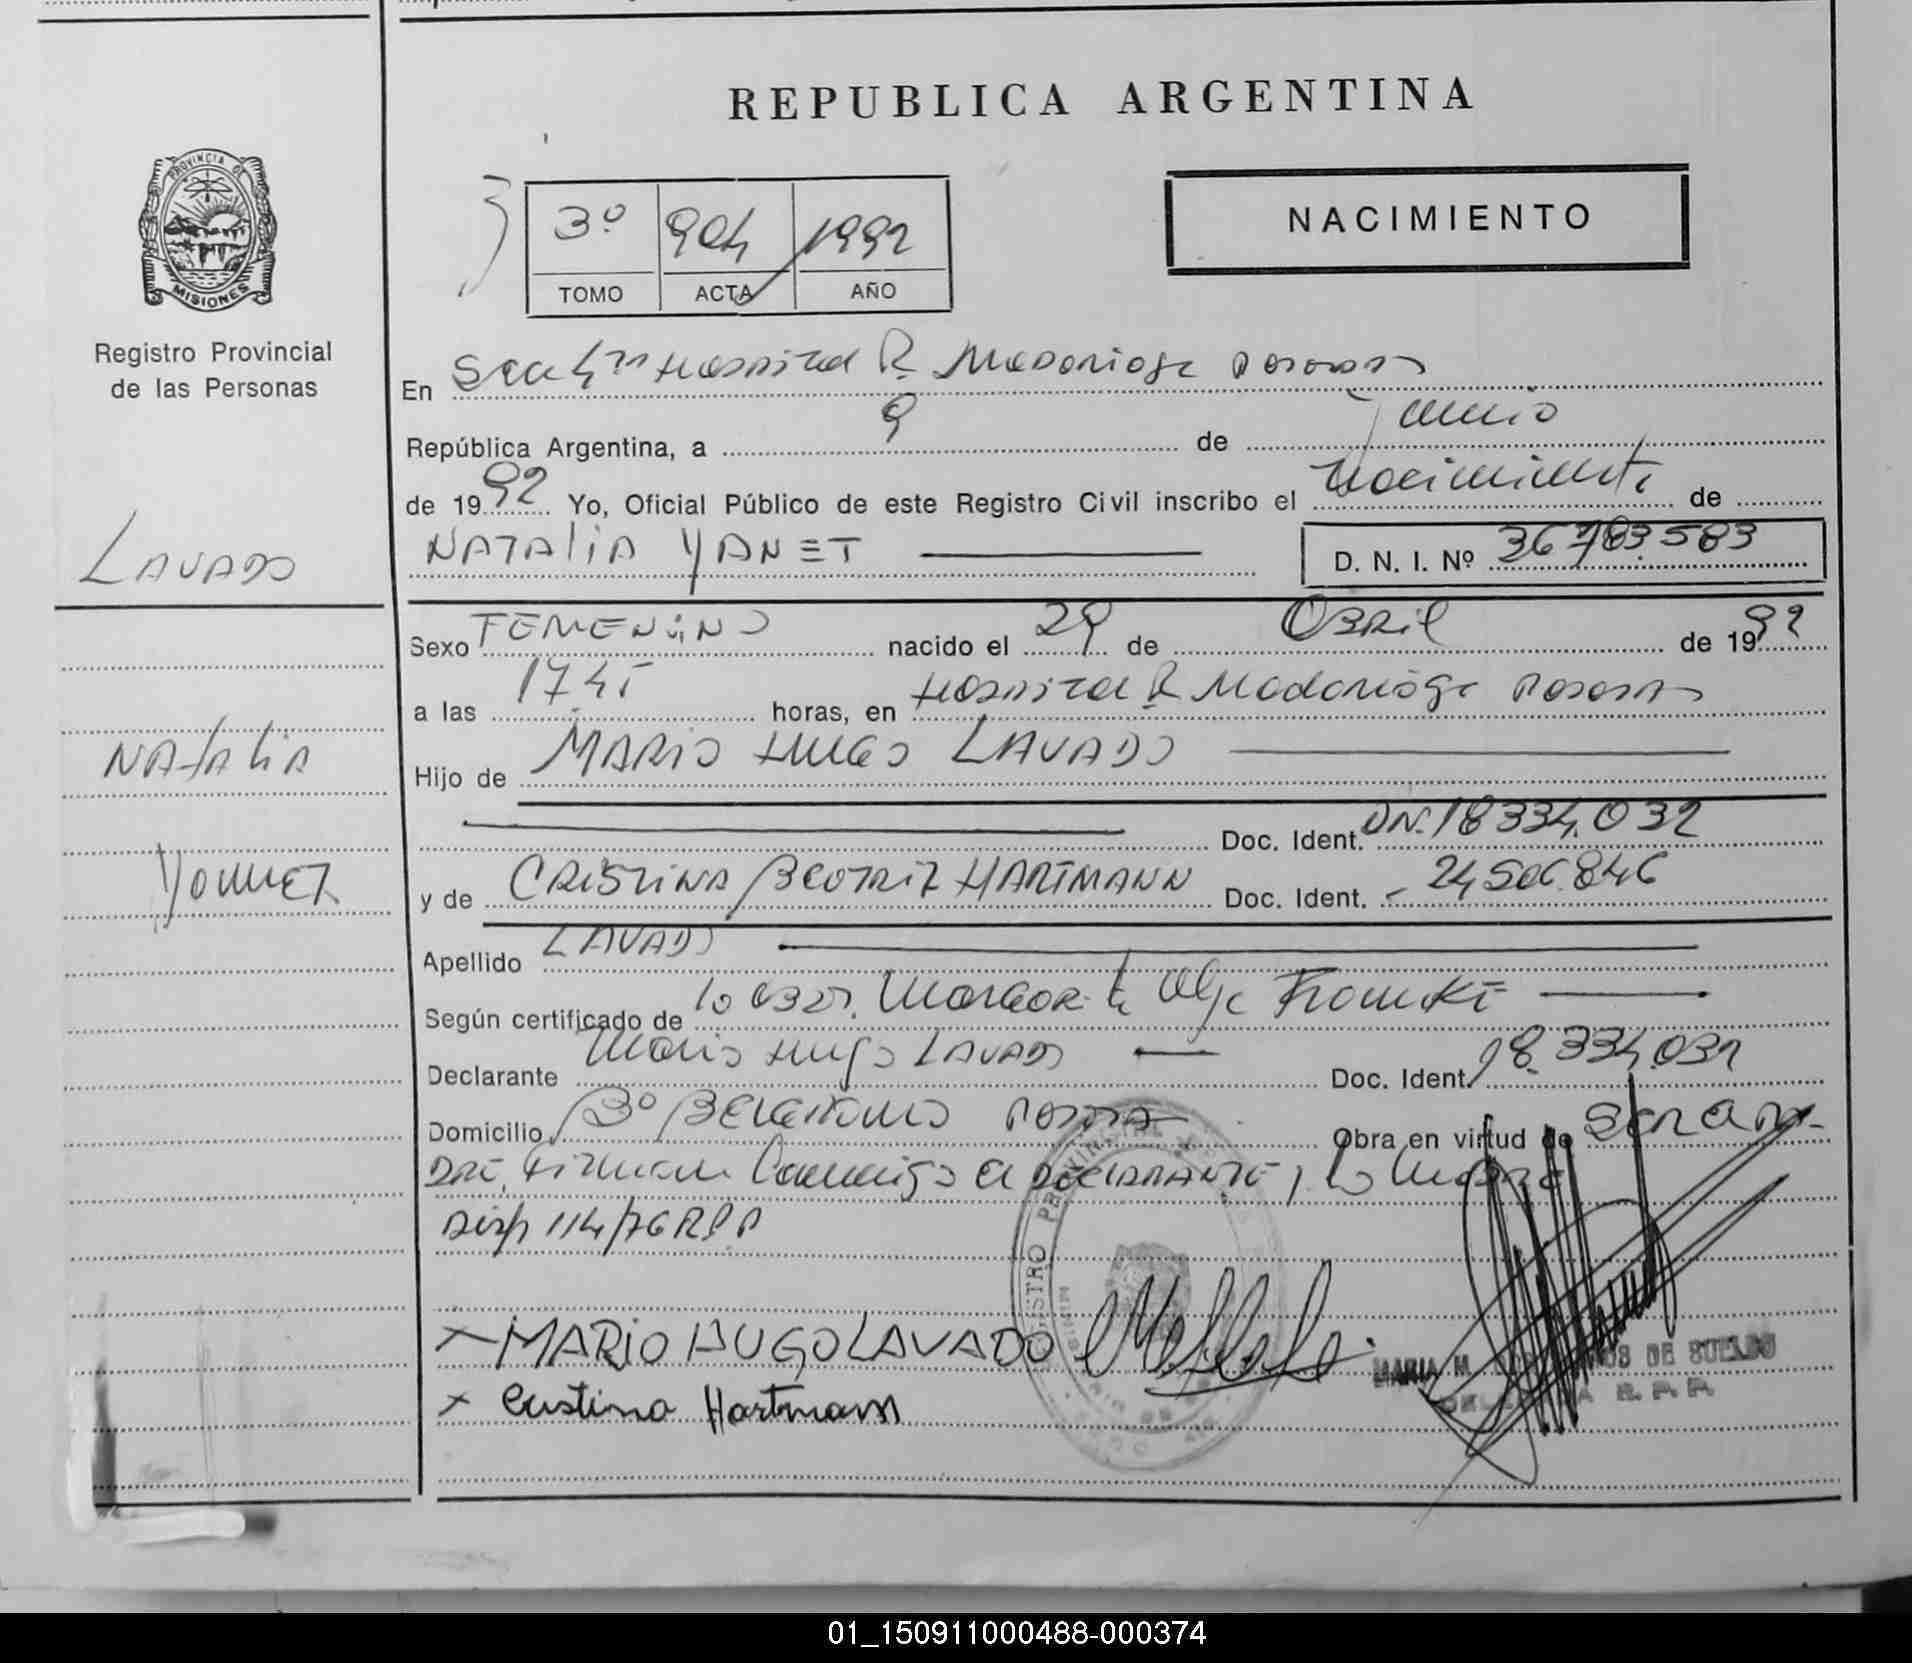 REPUBLICA ARGENTINA
PROVINCIA DE
MISIONES
Registro Provincial
de las Personas
3º 904 1992
TOMO ACTA AÑO
NACIMIENTO
En Hospital R. Madariaga Posadas
República Argentina, a 9 de Junio
de 1992 Yo, Oficial Público de este Registro Civil inscribo el Nacimiento de
LAVADO
NATALIA YANET
D. N. I. Nº 36.783.583
Sexo FEMENINO nacido el 29 de Abril de 1992
a las 17.45 horas, en Hospital R Madariaga Posadas
NATALIA
Hijo de MARIO HUGO LAVADO
Doc. Ident. DN. 18.334.032
YANNET
y de CRISTINA BEATRIZ HARTMANN Doc. Ident. 24.506.846
Apellido LAVADO
Según certificado de la Obst. Margarita Olga
Declarante Mario Hugo LAVADO Doc. Ident. 18.334.032
Domicilio Bº BELGRANO Posadas Obra en virtud de
Firman Conmigo el DECLARANTE y la Madre
Disp 114/76 RPP
REGISTRO PROVINCIAL
MARIO HUGO LAVADO
Cristina Hartmann
MARIA M. DE SUELDO
R. P. P.
01_150911000488-000374